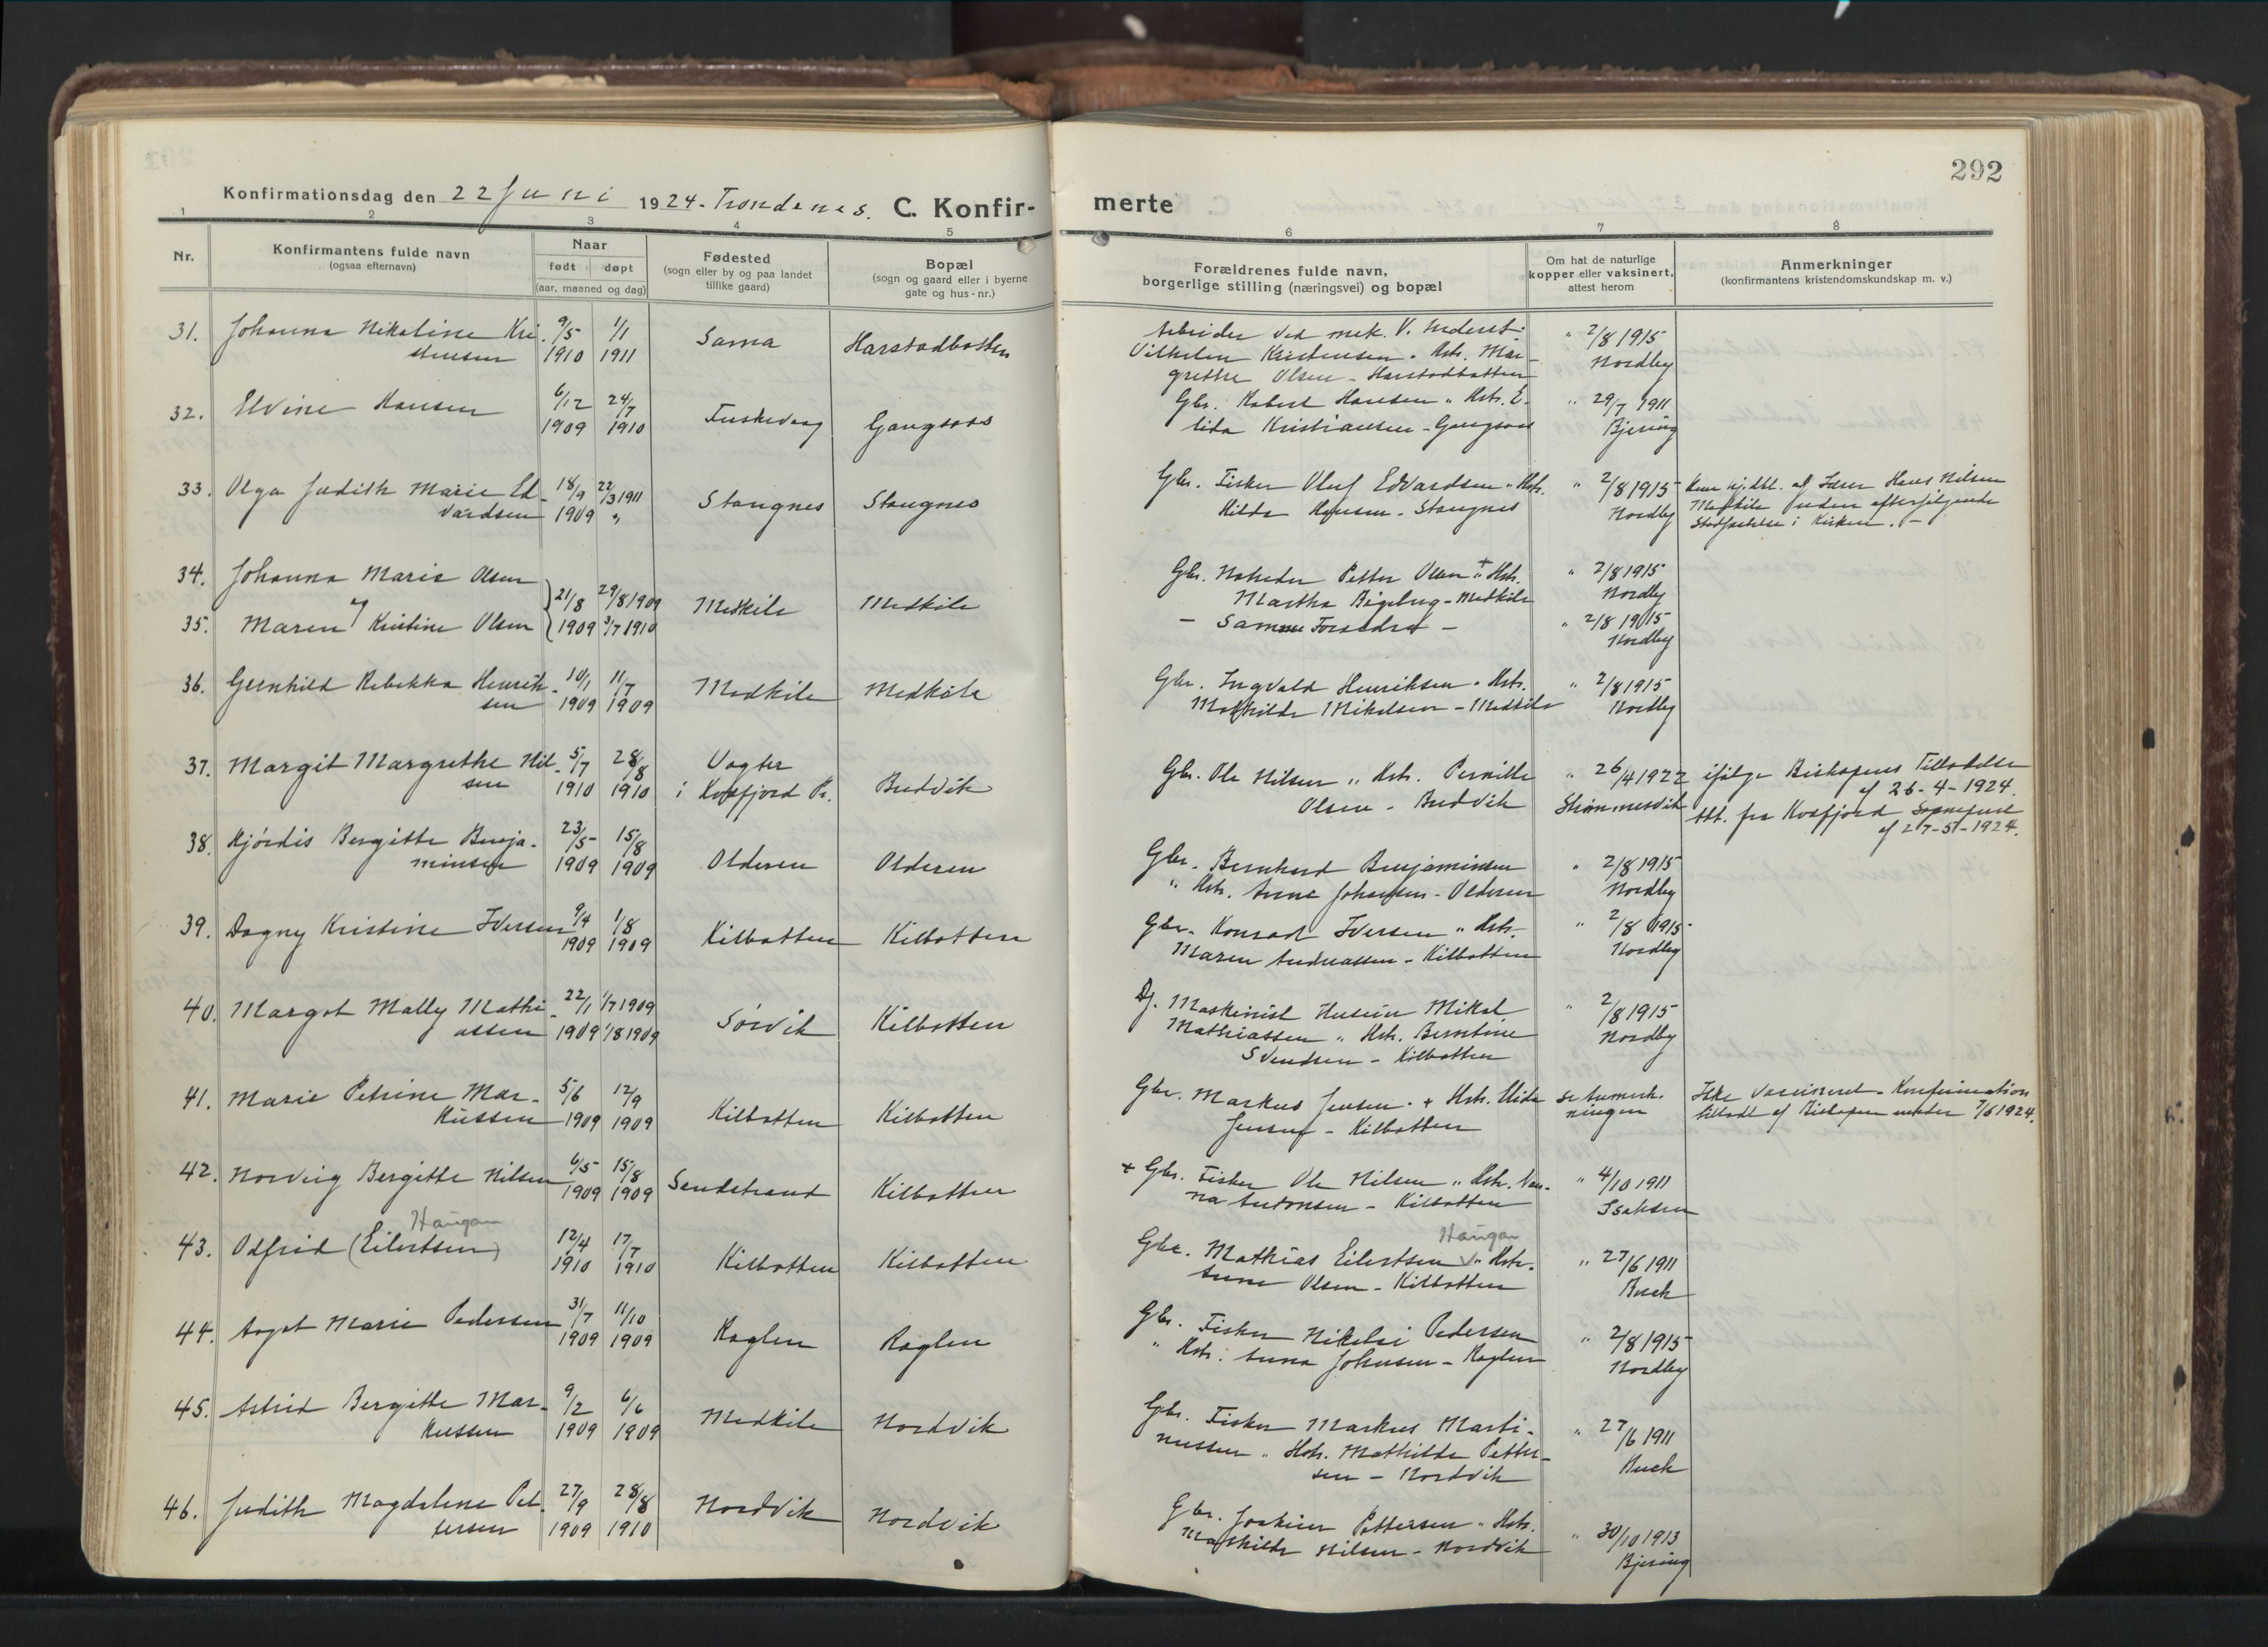 292
Konfirmationsdag den 22 Juni 1924. Trondenes. C. Konfir-
merte
1 2 3 4 5 6 7 8
Nr.
Konfirmantens fulde navn
(ogsaa efternavn)
Naar
født døpt
(aar, maaned og dag)
Fødested
(sogn eller by og paa landet
tillike gaard)
Bopæl
(sogn og gaard eller i byerne
gate og hus-nr.)
Forældrenes fulde navn,
borgerlige stilling (næringsvei) og bopæl
Om hat de naturlige
kopper eller vaksinert,
attest herom
Anmerkninger
(konfirmantens kristendomskundskap m. v.)
31. Johanna Nikoline Kri-
stensen
9/5 1910
1/1 1911
Sama
Harstadbotten
Arbeider ved mek. V.
Vilhelm Kristensen. Hstr. Mar-
grethe Olsen - Harstadbotten
" 2/8 1915
Nordby
32. Elvine Hansen
6/12 1909
24/7 1910
Fuskevaag
Gangsaas
Gbr. Robert Hansen " Hstr. E-
lida Kristiansen - Gangsaas
" 29/7 1911
Bjering
33. Olga Judith Marie Ed-
vardsen
18/9 1909
22/3 1911
"
Stangnes
Stangnes
Gbr. Fisker Oluf Edvardsen " Hstr.
Hilda Hansen - Stangnes
" 2/8 1915
Nordby
Kun hj.dbt. af Lærer Hans Nilsen
Medkile uden efterfølgende
Stadfæstelse i Kirken. -
34. Johanna Marie Olsen
og
35. Maren Kristine Olsen
21/8 1909
29/8 1909
3/7 1910
Medkile
Medkile
Gbr. Petter Olsen + " Hstr.
Martha - Medkile
" 2/8 1915
Nordby
- Samme Forældre -
" 2/8 1915
Nordby
36. Gunhild Rebekka Henrik-
sen
10/1 1909
11/7 1909
Medkile
Medkile
Gbr. Ingvald Henriksen " Hstr.
Mathilde Mikelsen - Medkile
" 2/8 1915
Nordby
37. Margit Margrethe Nil-
sen
5/7 1910
28/8 1910
Vogter
i Kvæfjord Pr.
Budvik
Gbr. Ole Nilsen " Hstr. Pernille
Olsen - Budvik
" 26/4 1922
ifølge Biskopens Tilladelse
af 26-4-1924.
Att. fra Kvæfjord Sognepræst
af 27-5-1924.
38. Hjørdis Bergitte Benja-
minsen
23/5 1909
15/8 1909
Olderen
Olderen
Gbr. Bernhard Benjaminsen
" Hstr. Anne Johansen - Olderen
" 2/8 1915
Nordby
39. Dagny Kristine Iversen
9/4 1909
1/8 1909
Kilbotten
Kilbotten
Gbr. Konrad Iversen " Hstr.
Maren Andreassen - Kilbotten
" 2/8 1915
Nordby
40. Margot Mally Mathi-
assen
22/1 1909
1/7 1909
1/8 1909
Sørvik
Kilbotten
Dj. Maskinist Husein Mikal
Mathiassen " Hstr. Berntine
Svendsen - Kilbotten
" 2/8 1915
Nordby
41. Marie Petrine Mar-
kussen
5/6 1909
12/9 1909
Kilbotten
Kilbotten
Gbr. Markus Jensen. + Hstr. Alida
Jensen - Kilbotten
se Anmerk-
ningen
Ikke vaccineret. Konfirmation
tilladt af Biskopen under 7/6 1924.
42. Norveig Bergitte Nilsen
6/5 1909
15/8 1909
Sandstrand
Kilbotten
+ Gbr. Fisker Ole Nilsen " Hstr. Nan-
na Antonsen - Kilbotten
" 4/10 1911
Isaksen
43. Odfrid (Eilertsen)
Haugan
12/4 1910
17/7 1910
Kilbotten
Kilbotten
Haugan
Gbr. Mathias Eilertsen " Hstr.
Anne Olsen - Kilbotten
" 27/6 1911
Buch
44. Aagot Marie Pedersen
31/7 1909
11/10 1909
Raglen
Raglen
Gbr. Fisker Nikolai Pedersen
" Hstr. Anna Johnsen - Raglen
" 2/8 1915
Nordby
45. Astrid Bergitte Mar-
kussen
9/2 1909
6/6 1909
Medkile
Nordvik
Gbr. Fisker Markus Marti-
nussen " Hstr. Mathilde Petter-
sen - Nordvik
" 27/6 1911
Buch
46. Judith Magdalene Pet-
tersen
27/9 1909
28/8 1910
Nordvik
Nordvik
Gbr. Joakim Pettersen " Hstr.
Mathilde Nilsen - Nordvik
" 30/10 1913
Bjering